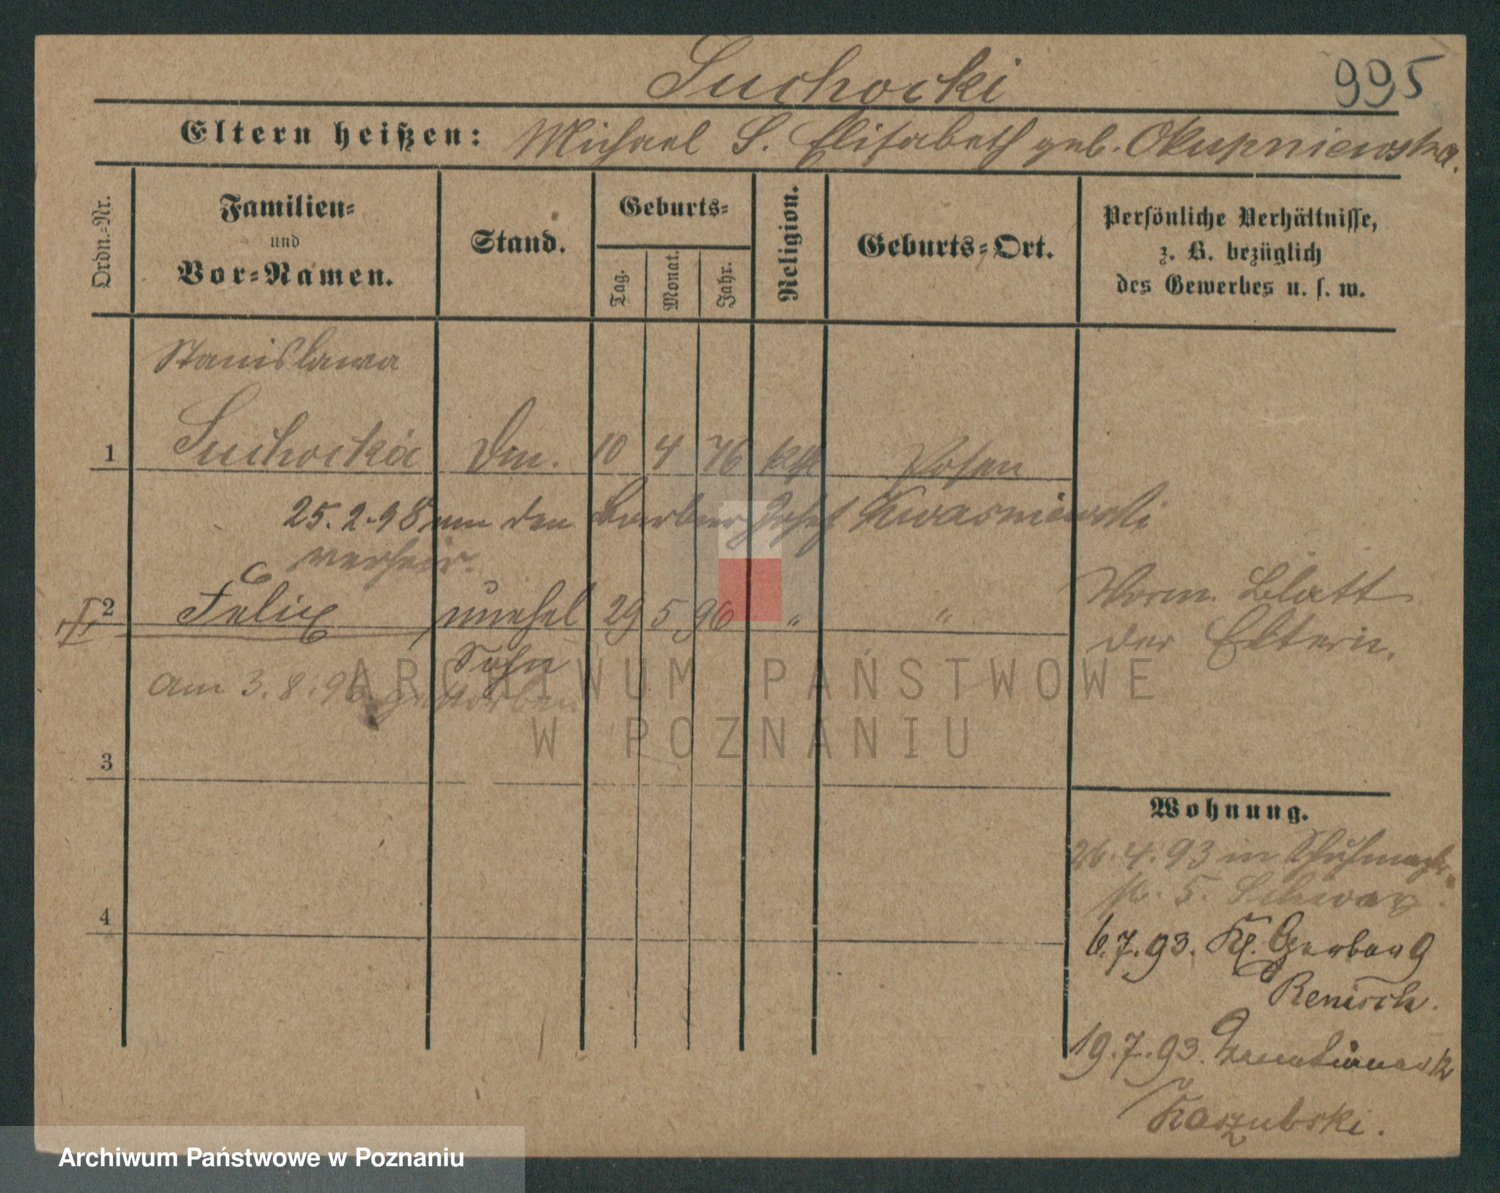 Suchocki
995
Eltern heißen: Michael S. Elisabeth geb. Okupniewska.
Ordn.-Nr.
Familien-
und
Vor-Namen.
Stand.
Geburts-
Tag.
Monat.
Jahr.
Religion.
Geburts-Ort.
Persönliche Verhältnisse,
z. B. bezüglich
des Gewerbes u. s. w.
Stanislawa
1 Suchocka 10 4 76 kth Posen
25.2.98 mit den Barbier Josef Kwasniewski
verheir.
2 Felix unehel 29 5 96 " "
Sohn
am 3.8.96 gestorben
Vorm. Blatt
der Eltern.
3
Wohnung.
26.4.93 in Schuhmacher
st. 5. Schwarz
4
6.7.93. Kl. Gerber 9
Renisch.
19.7.93.
Kaszubski.
ARCHIWUM PAŃSTWOWE
W POZNANIU
Archiwum Państwowe w Poznaniu